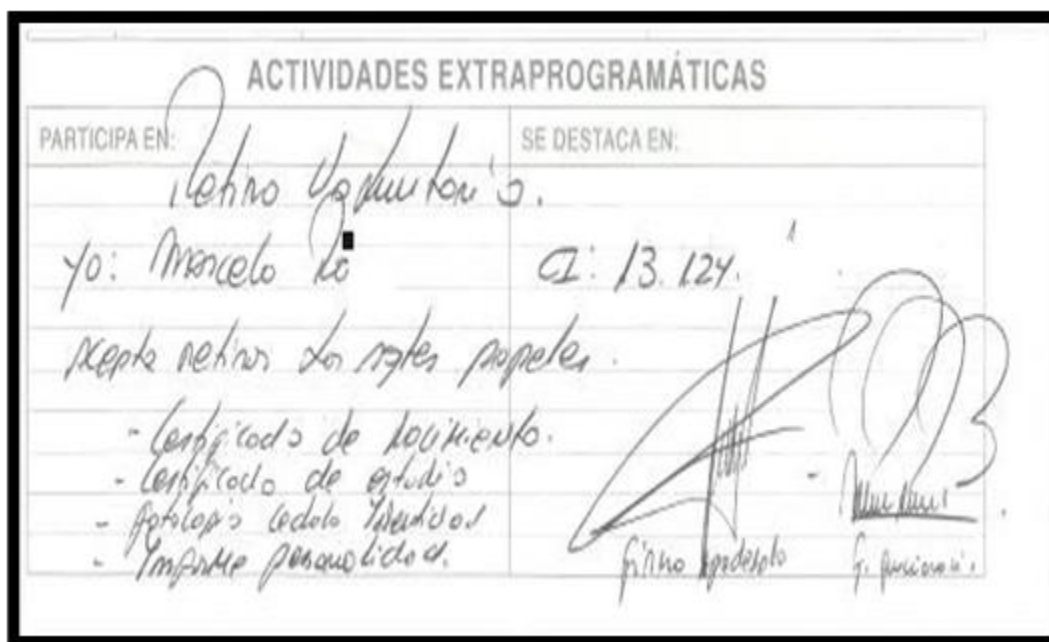 ACTIVIDADES EXTRAPROGRAMÁTICAS
PARTICIPA EN:
SE DESTACA EN:
Retiro
Yo: Marcelo
CI: 13.124.
retirar los sgtes papeles.
- Certificado de nacimiento.
- Certificado de estudio
- Fotocopia cedula Identidad
- Informe personalidad.
firma apoderado
f. funcionario